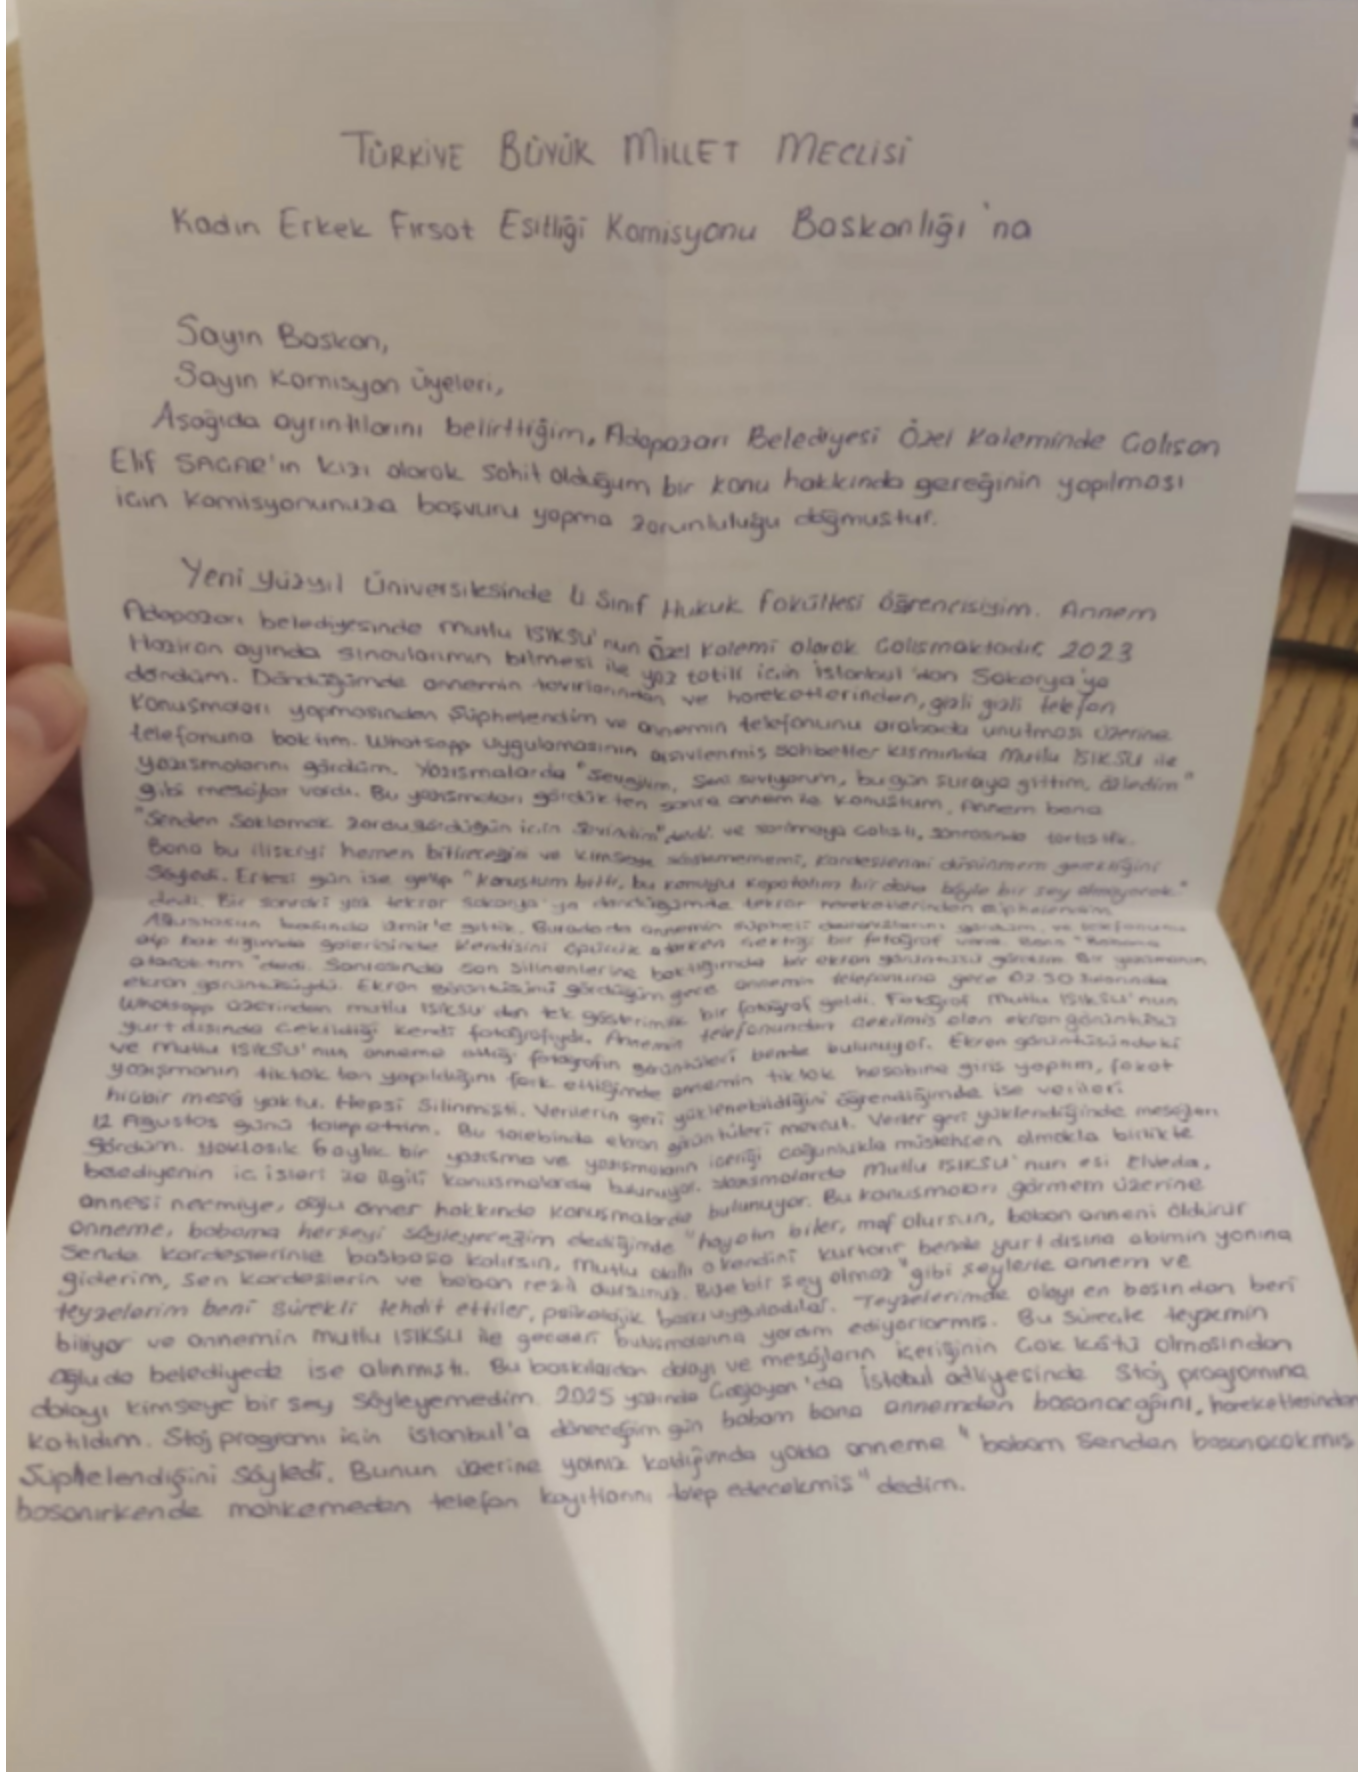 TÜRKİYE BÜYÜK MİLLET MECLİSİ
Kadın Erkek Fırsat Esitliği Komisyonu Baskanlığı'na
Sayın Baskan,
Sayın Komisyon Üyeleri,
Asağıda ayrıntılarını belirttiğim, Adapazarı Belediyesi Özel Kaleminde Calısan
Elif SAGAR'ın kızı olarak sahit olduğum bir konu hakkında gereğinin yapılması
icin Komisyonunuza başvuru yapma zorunluluğu doğmustur.
Yeni yüzyıl Üniversitesinde 4 Sınıf Hukuk fakültesi öğrencisiyim. Annem
Adapazarı belediyesinde mutlu ISIKSU'nun Özel Kalemi olarak Calısmaktadır. 2023
Haziran ayında sınavlarımın bitmesi ile yaz tatili icin İstanbul'dan Sakarya'ya
döndüm. Döndüğümde annemin tavırlarından ve hareketlerinden, gizli gizli telefon
Konusmaları yapmasından Süphelendim ve annemin telefonunu arabada unutması üzerine
telefonuna baktım. Whatsapp uygulamasının arsivlenmis sohbetler kısmında Mutlu ISIKSU ile
yazısmalarını gördüm. Yazısmalarda "Sevgilim, Seni seviyorum, bugün suraya gittim, özledim"
gibi mesajlar vardı. Bu yazısmaları gördükten sonra annem ile Konustum. Annem bana
"Senden Saklamak zordu gördüğün icin Sevindim" dedi ve sarılmaya calıstı, sonrasında tartıstık.
Bana bu iliskiyi hemen bitireceğini ve kimseye söylemememi, Kardeslerimi düsünmem gerektiğini
Söyledi. Ertesi gün ise gelip "Konustum bitti, bu konuyu kapatalım bir daha böyle bir sey olmayacak"
dedi. Bir sonraki yaz tekrar Sakarya'ya döndüğümde tekrar hareketlerinden süphelendim
Ağustosun basında izmir'e gittik. Burada da annemin süpheli davranıslarını gördüm, ve telefonunu
alıp baktığımda galerisinde Kendisini öpücük atarken cektiği bir fotoğraf vardı. Bana "Babana
atacaktım" dedi. Sonrasında son silinenlerine baktığımda bir ekran görüntüsü gördüm. Bir yazısmanın
ekran görüntüsüydü. Ekran görüntüsünü gördüğüm gece annemin telefonuna gece 02.30 Sularında
Whatsapp üzerinden mutlu ISIKSU'dan tek gösterimlik bir fotoğraf geldi. Fotoğraf Mutlu ISIKSU'nun
yurt dısında Cekildiği kendi fotoğrafıydı. Annemin telefonundan Cekilmis olan ekran görüntüsü
ve Mutlu ISIKSU'nun anneme attığı fotoğrafın görüntüleri bende bulunuyor. Ekran görüntüsündeki
yazısmanın tiktok tan yapıldığını fark ettiğimde annemin tiktok hesabına giris yaptım, fakat
hicbir mesaj yoktu. Hepsi Silinmisti. Verilerin geri yüklenebildiğini öğrendiğimde ise verileri
12 Ağustos günü talep ettim. Bu talebimde ekran görüntüleri mevcut. Veriler geri yüklendiğinde mesajları
gördüm. Yaklasık 6 aylık bir yazısma ve yazısmaların iceriği coğunlukla müstehcen olmakla birlikte
belediyenin ic isleri ile ilgili konusmalarda bulunuyor. Yazısmalarda Mutlu ISIKSU'nun esi Elveda,
annesi necmiye, oğlu ömer hakkında konusmalarda bulunuyor. Bu konusmaları görmem üzerine
anneme, babama herseyi söyleyeceğim dediğimde "hayatın biter, maf olursun, baban anneni öldürür
Sende Kardeslerinle basbasa kalırsın, Mutlu akıllı o kendini kurtarır bende yurt dısına abimin yanına
giderim, sen kardeslerin ve baban rezil olursunuz. Bize bir sey olmaz" gibi seylerle annem ve
teyzelerim beni Sürekli tehdit ettiler, psikolojik baskı uyguladılar. Teyzelerimde olayı en basından beri
biliyor ve annemin mutlu ISIKSU ile geceleri bulusmalarına yardım ediyorlarmıs. Bu Sürecte teyzemin
oğluda belediyede ise alınmıstı. Bu baskılardan dolayı ve mesajların iceriğinin Cok kötü olmasından
dolayı kimseye bir sey Söyleyemedim. 2025 yazında Caglayan'da İstabul adliyesinde Staj programına
katıldım. Staj programı icin istanbul'a döneceğim gün babam bana annemden bosanacağını, hareketlerinden
Süphelendiğini Söyledi. Bunun üzerine yalnız kaldığımda yolda anneme "babam Senden bosanacakmıs
bosanırkende mahkemeden telefon kayıtlarını talep edecekmis" dedim.